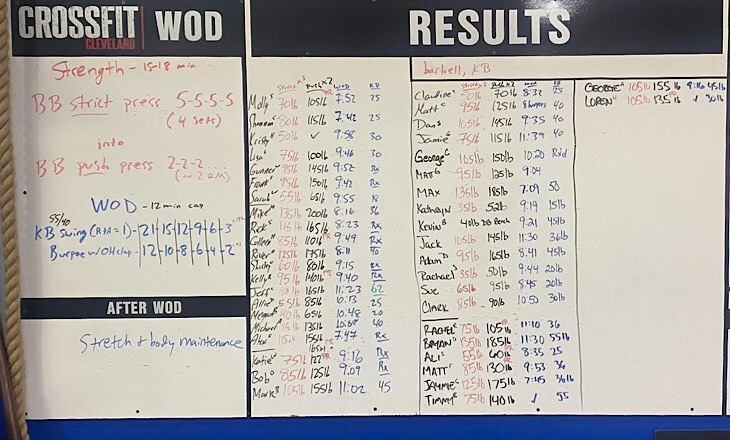 CROSSFIT
CLEVELAND
WOD
Strength - 15-18 min
BB strict press 5-5-5-5
(4 sets)
into
BB push press 2-2-2...
WOD - 12 min cap
55/40
KB Swing 21 15 12 9 6 3
Burpee w/OH clap - 12 10 8 6 4 2
AFTER WOD
Stretch & body maintenance
RESULTS
Strict 5 Push x2 WOD KB
Molly 70lb 105lb 7:52 25
Shannon 80lb 115lb 7:42 25
Kristy 50lb ✓ 9:58 30
Lisa 75lb 100lb 9:46 30
Gunnar 95lb 145lb 9:52 Rx
Frank 95lb 150lb 9:42 Rx
Sarah 55lb 65lb 9:55 18
Mike 135lb 200lb 8:16 36
Rick 115lb 165lb 8:23 Rx
Colleen 85lb 110lb PR 9:49 Rx
River 125lb 175lb 8:11 40
Shelby 60lb 80lb 9:15 Rx
Kelly 95lb 140lb PR 9:40 Rx
Jeff 165lb 11:23 62
Allie 55lb 85lb 10:13 25
Megan 40lb 65lb 10:48 20
Michael 135lb 10:08 40
Alex 155lb PR 7:47 Rx
165x1
Katie 75lb 122 PR 9:16 Rx
Bob 85lb 125lb 9:09 Rx
Mark 105lb 155lb 11:02 45
barbell, KB
Strict 5 Push x2 WOD KB
Claudine 50lb 70lb 8:32 25
Matt 95lb 125lb 8 burpees 40
Dan 105lb 145lb 9:35 40
Jamie 75lb 115lb 11:39 40
George 105lb 150lb 10:20 Rxd
Matt 95lb 125lb 9:04
MAX 135lb 185lb 7:09 50
Kathryn 35lb 52lb 9:19 15lb
Kevin 40lb DB Bench 9:21 45lb
Jack 105lb 145lb 11:30 36lb
Adam 95lb 165lb 8:41 45lb
Rachael 35lb 50lb 9:44 20lb
Sue 65lb 95lb 8:45 20lb
CLARK 85lb 90lb 10:50 30lb
RACHEL 75lb 105lb PR 11:10 36
BRYAN 135lb 185lb 11:30 55lb
ALI 55lb 60lb PR 8:35 25
MATT 85lb 130lb 9:53 36
JAYME 125lb 175lb 7:45 36lb
TIMMY 75lb 140lb ✓ 55
GEORGE 105lb 155lb 9:16 45lb
LOREN 105lb 135lb PR ✓ 30lb